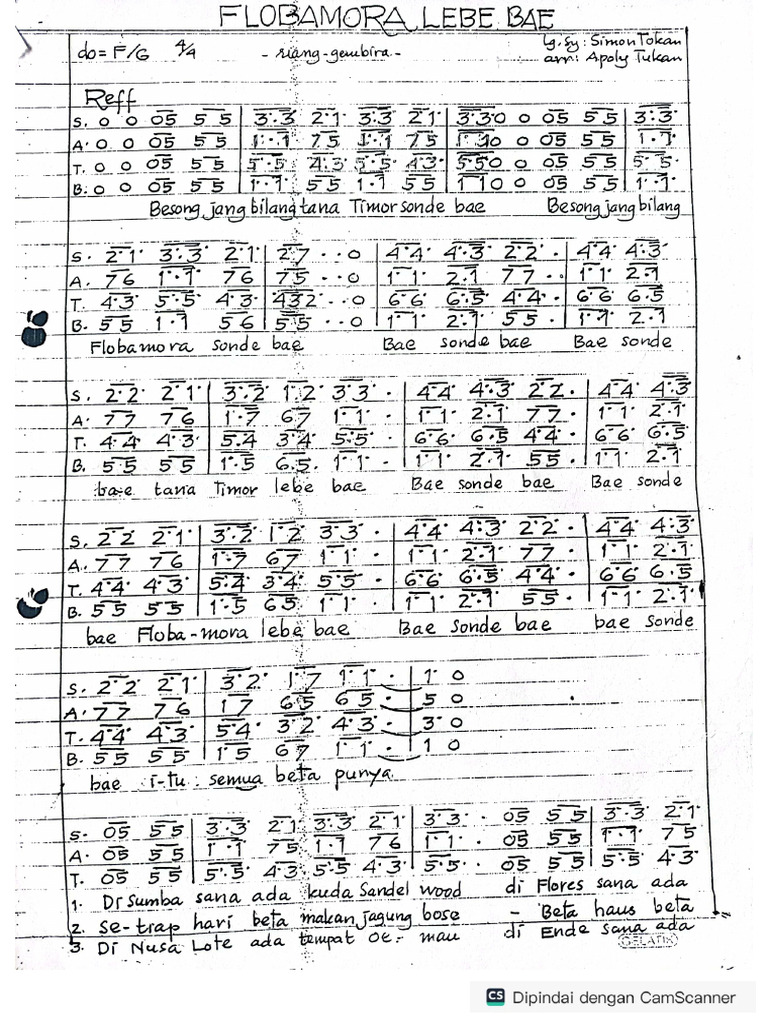 FLOBAMORA LEBE BAE
do = F/G 4/4 - riang-gembira - lg. by: Simon Tokan
arr: Apoly Tukan
Reff
S. 0 0 05 55 | 3·3 2·1 3·3 2·1 | 3·30 0 05 55 | 3·3
A. 0 0 05 55 | 1·1 75 1·1 75 | 1·10 0 05 55 | 1·1
T. 0 0 05 55 | 5·5 4·3 5·5 4·3 | 5·50 0 05 55 | 5·5
B. 0 0 05 55 | 1·1 55 1·1 55 | 110 0 05 55 | 1·1
Besong jang bilang tana Timor sonde bae Besong jang bilang
S. 2·1 3·3 2·1 | 2·7 · · 0 | 4·4 4·3 2·2 · | 4·4 4·3
A. 76 1·1 76 | 75 · · 0 | 1·1 2·1 77 · · | 1·1 2·1
T. 4·3 5·5 4·3 | 432 · · 0 | 6·6 6·5 4·4 · | 6·6 6·5
B. 55 1·1 56 | 5·5 · · 0 | 1·1 2·1 55 · | 1·1 2·1
Flobamora sonde bae Bae sonde bae Bae sonde
S. 2·2 2·1 | 3·2 1·2 3·3 · | 4·4 4·3 2·2 · | 4·4 4·3
A. 77 76 | 1·7 67 1·1 · | 1·1 2·1 77 · | 1·1 2·1
T. 4·4 4·3 | 5·4 3·4 5·5 · | 6·6 6·5 4·4 · | 6·6 6·5
B. 55 55 | 1·5 6·5 1·1 · | 1·1 2·1 55 · | 1·1 2·1
bae tana Timor lebe bae Bae sonde bae Bae sonde
S. 2·2 2·1 | 3·2 1·2 3·3 · | 4·4 4·3 2·2 · | 4·4 4·3
A. 77 76 | 1·7 67 1·1 · | 1·1 2·1 77 · | 1·1 2·1
T. 4·4 4·3 | 5·4 3·4 5·5 · | 6·6 6·5 4·4 · | 6·6 6·5
B. 55 55 | 1·5 65 1·1 · | 1·1 2·1 55 · | 1·1 2·1
bae Floba-mora lebe bae Bae sonde bae bae sonde
S. 2·2 2·1 | 3·2 1·7 1·1 · | 1 0
A. 77 76 | 17 65 65 · | 5 0
T. 4·4 4·3 | 5·4 3·2 4·3 · | 3 0
B. 55 55 | 1·5 67 1·1 · | 1 0
bae i-tu semua beta punya
S. 05 55 | 3·3 2·1 3·3 2·1 | 3·3 · 05 55 | 3·3 2·1
A. 05 55 | 1·1 75 1·1 76 | 1·1 · 05 55 | 1·1 75
T. 05 55 | 5·5 4·3 5·5 4·3 | 5·5 · 05 55 | 5·5 4·3
1. Di Sumba sana ada kuda Sandel wood di Flores sana ada
2. se-tiap hari beta makan jagung bose - Beta haus beta
3. Di Nusa Lote ada tempat Oe- mau di Ende sana ada
GELATIK
CS Dipindai dengan CamScanner